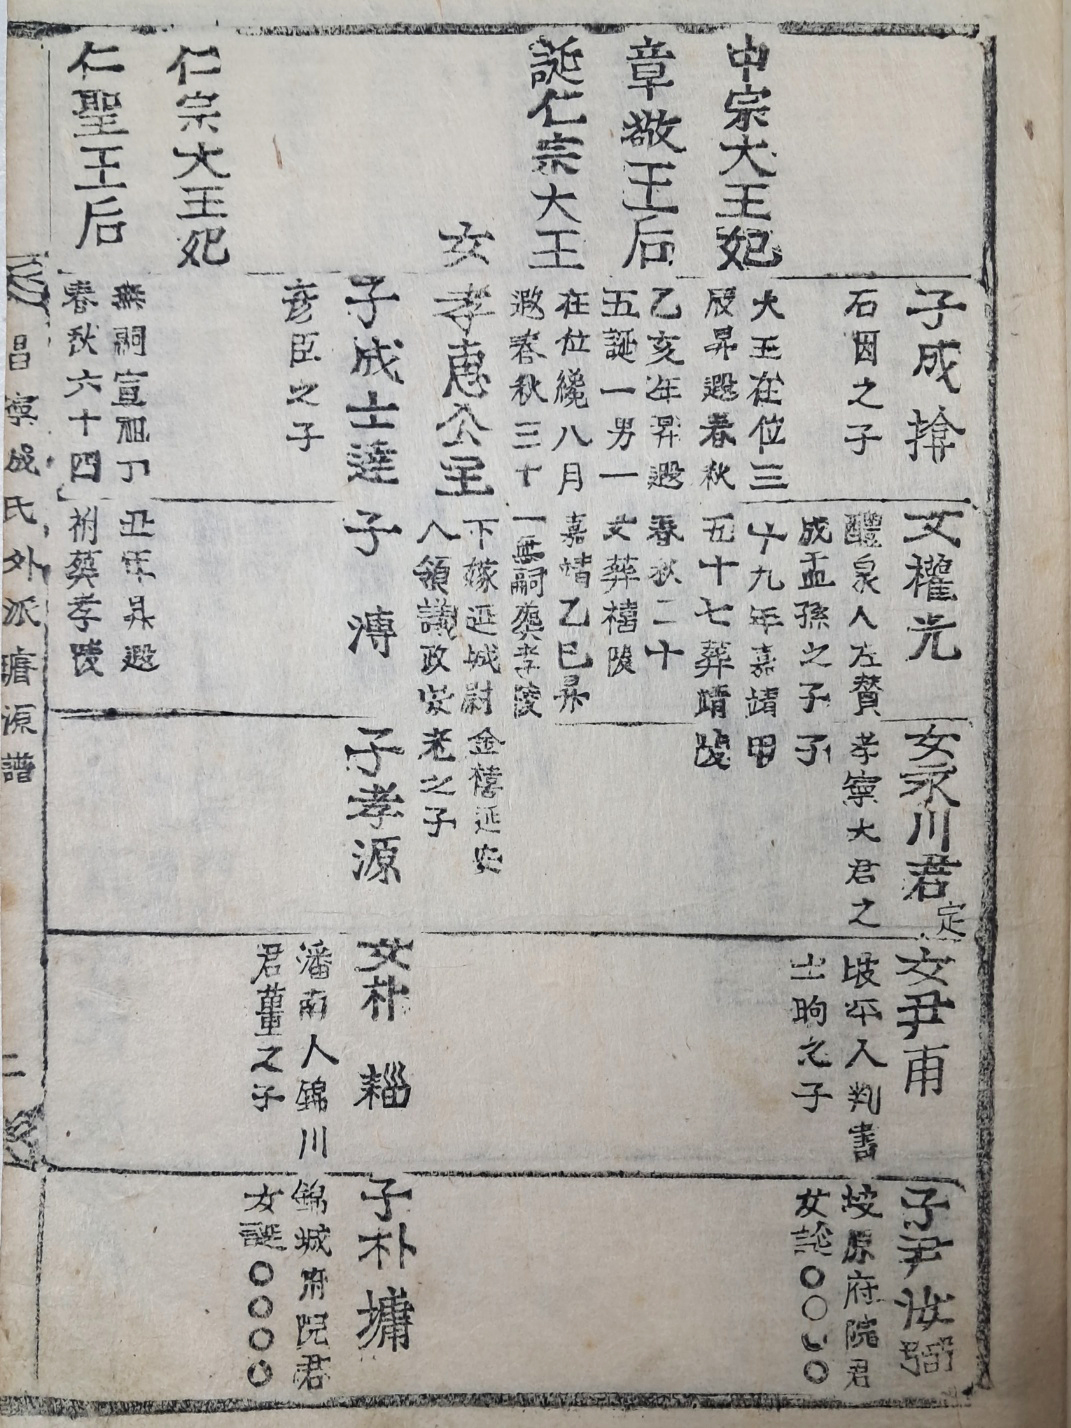 子成揜
石因之子
女權光
醴泉人左贊
成孟孫之子
女永川君
定
孝寧大君之
子
女尹甫
坡平人判書
士昫之子
子尹汝弼
坡原府院君
女誕〇〇〇〇
中宗大王妃
章敬王后
誕仁宗大王
大王在位三十九年嘉靖甲
辰昇遐春秋五十七葬靖陵
乙亥年昇遐春秋二十
五誕一男一女葬禧陵
在位纔八月嘉靖乙巳昇
遐春秋三十一無嗣葬孝陵
女孝惠公主
下嫁延城尉金禧延安
人領議政安老之子
子成士達
彦臣之子
子溥
子孝源
女朴緇
潘南人錦川
君薑之子
子朴墉
錦城府院君
女誕〇〇〇〇
仁宗大王妃
仁聖王后
無嗣宣祖丁丑年昇遐
春秋六十四祔葬孝陵
昌寧成氏外派璿源譜
二